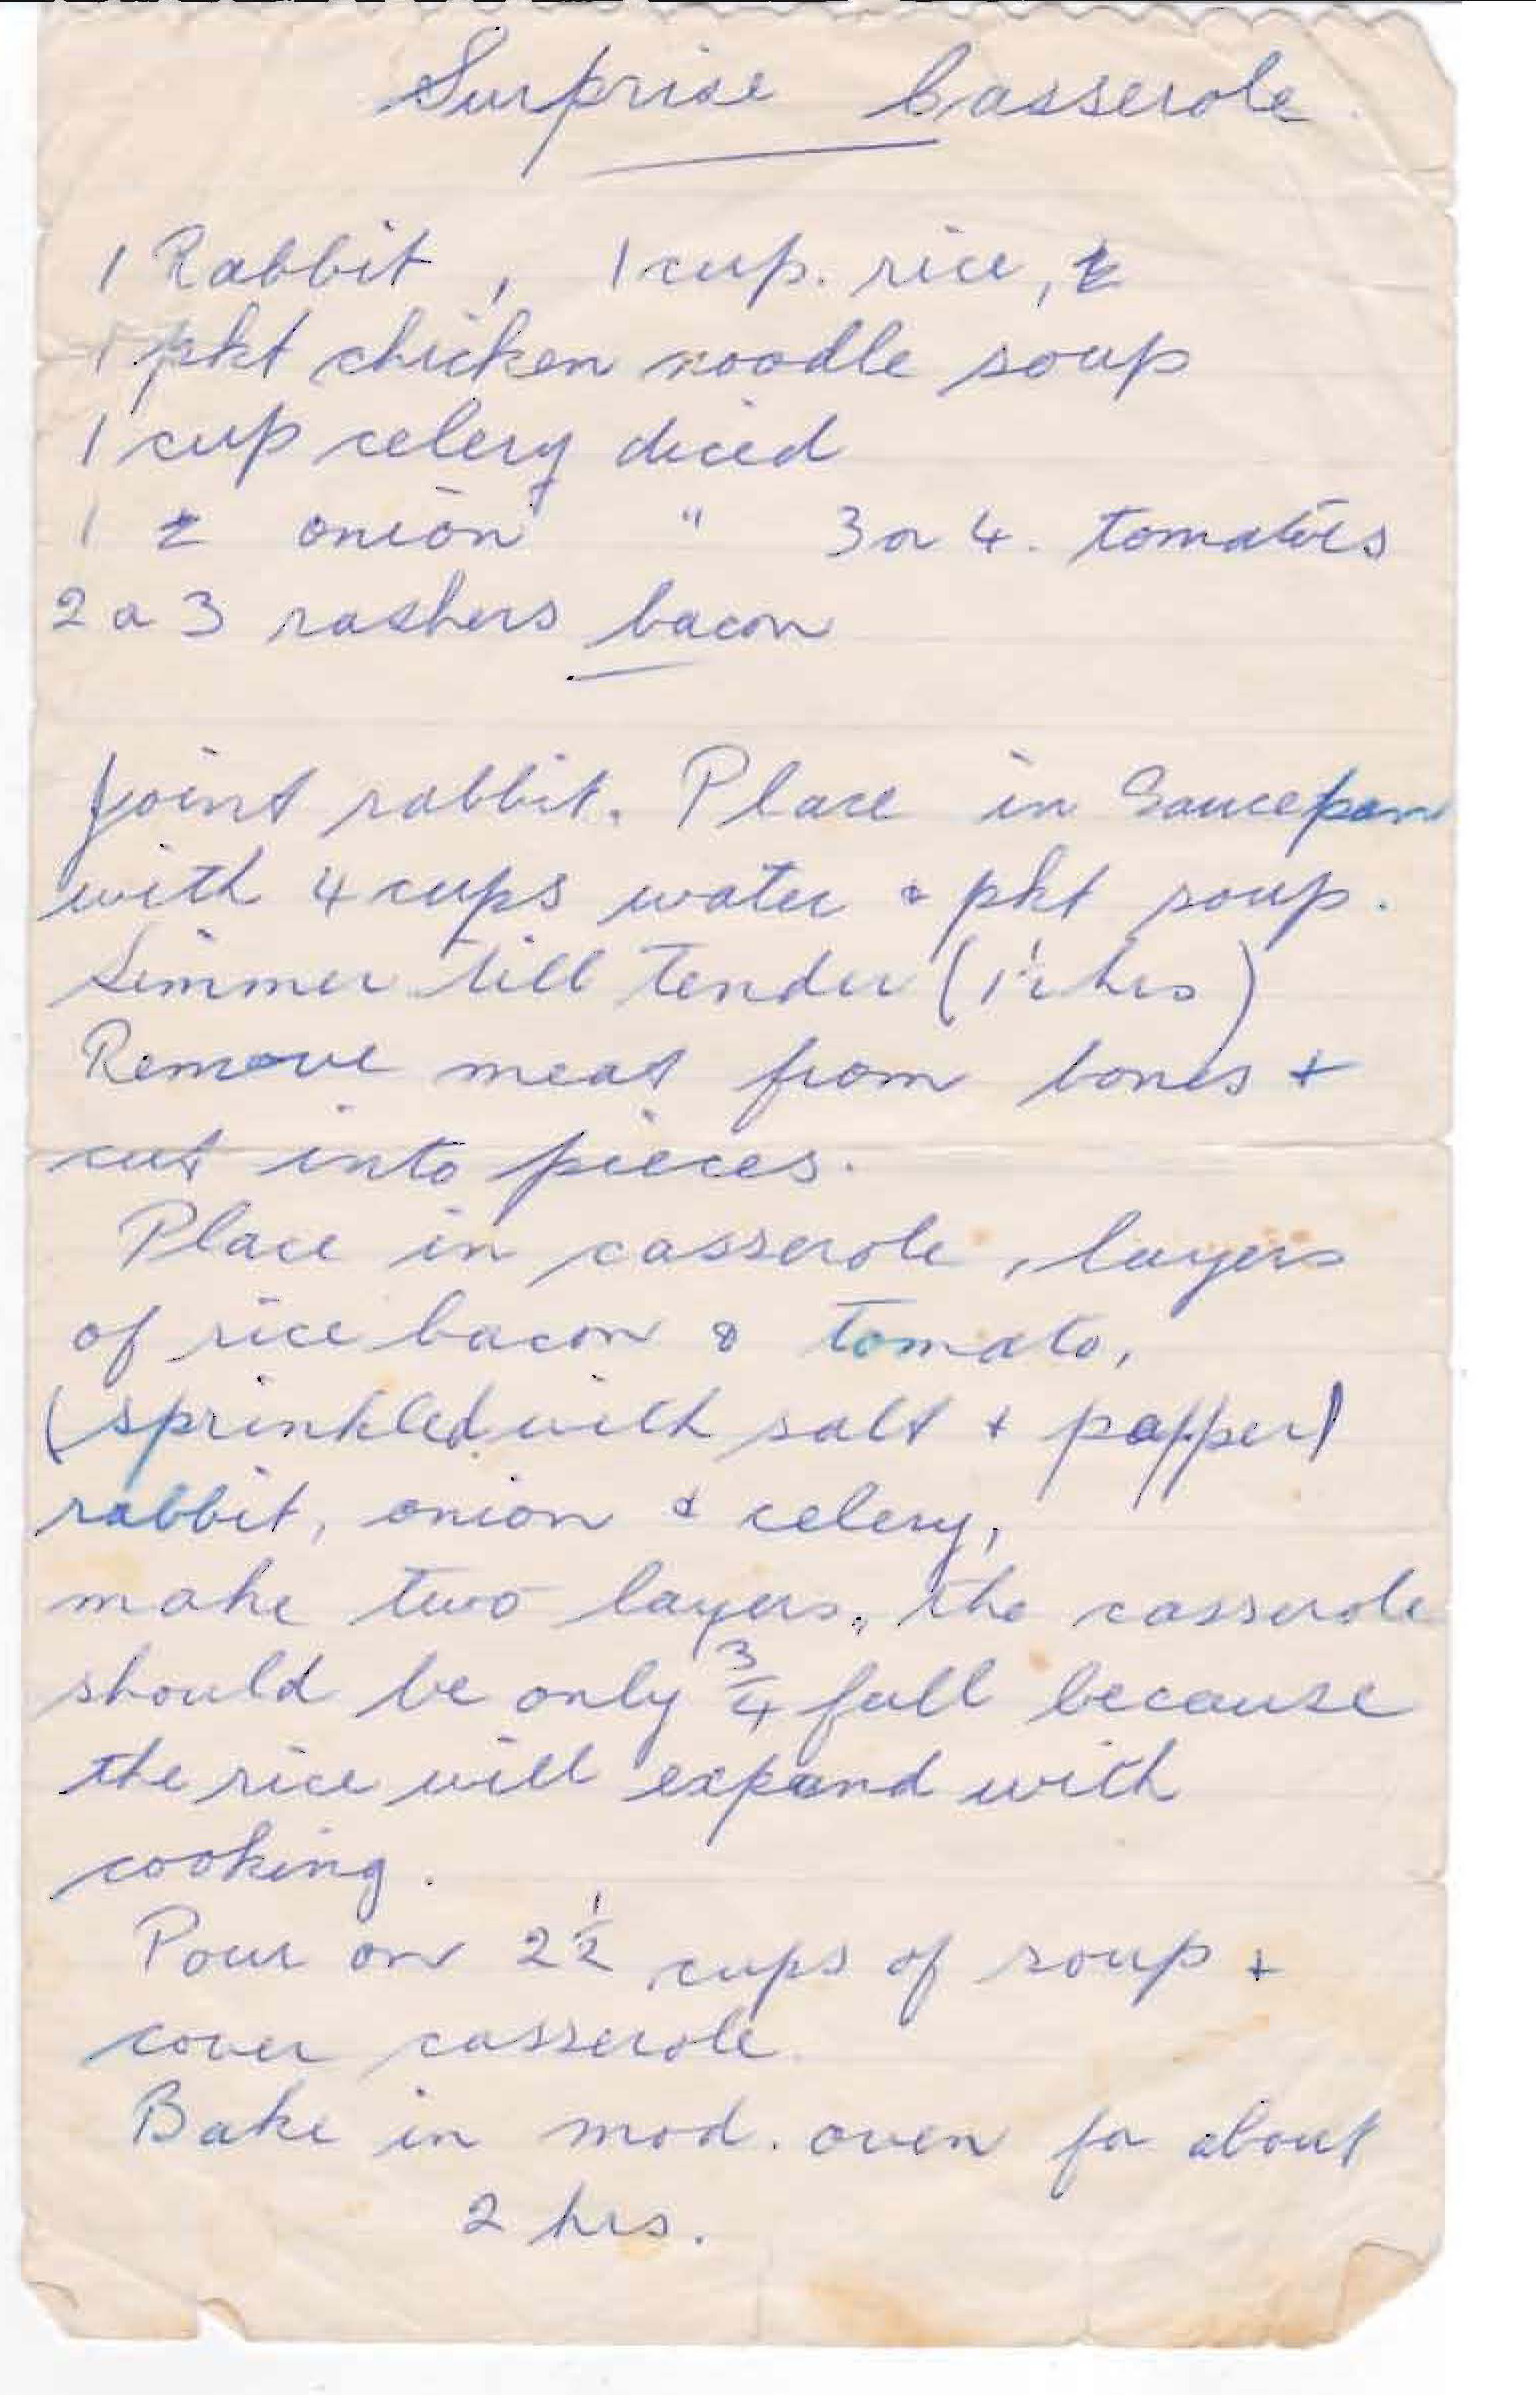 Surprise Casserole
1 Rabbit, 1 cup. rice,
1 pkt chicken noodle soup
1 cup celery diced
1 onion " 3 or 4. tomatoes
2 or 3 rashers bacon
Joint rabbit. Place in Saucepan
with 4 cups water & pkt soup.
Simmer till tender (1½ hrs)
Remove meat from bones +
cut into pieces.
Place in casserole, layers
of rice bacon & tomato,
(sprinkled with salt + papper)
rabbit, onion & celery,
make two layers, the casserole
should be only ¾ full because
the rice will expand with
cooking.
Pour on 2½ cups of soup +
cover casserole.
Bake in mod. oven for about
2 hrs.